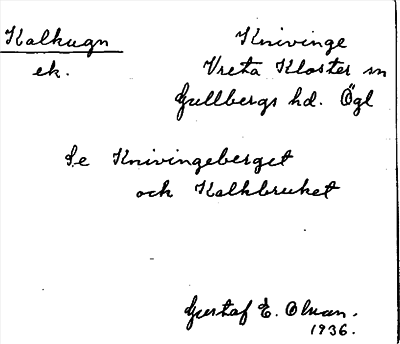 Kalkugn
ek.
Knivinge
Vreta Kloster sn
Gullbergs hd. Ögl
Se Knivingeberget
och Kalkbruket
Gustaf E. Olsson.
1936.